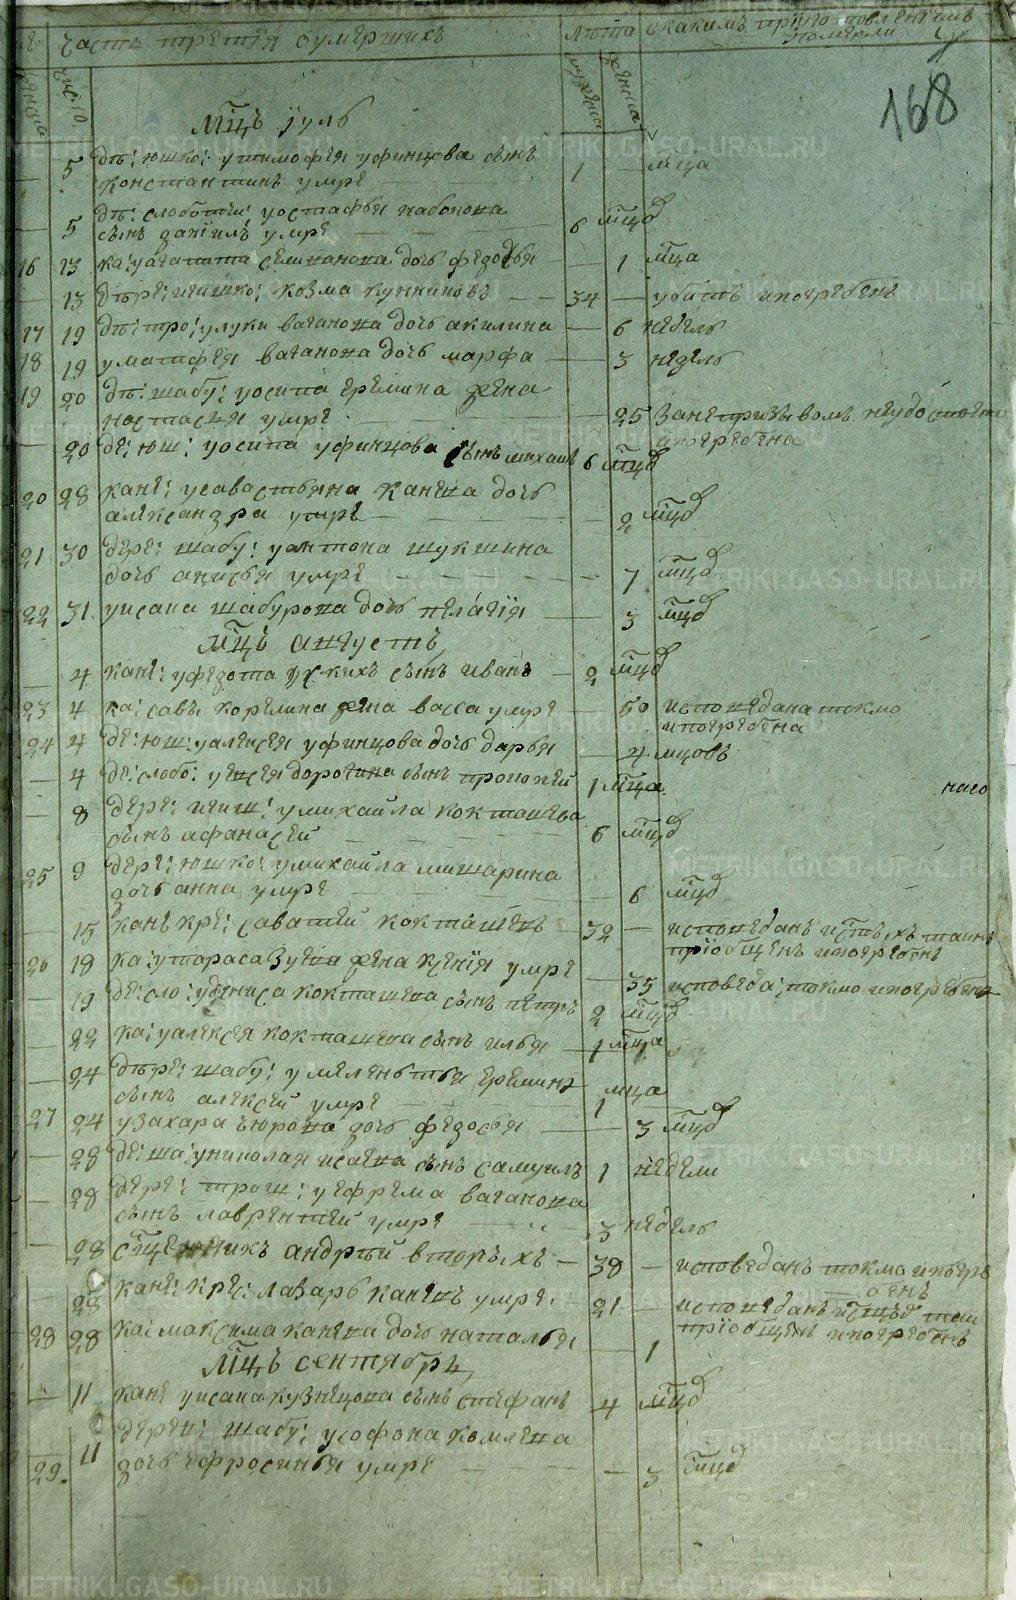 часть третiя оумершихъ лѣта скакимъ приуготовленiемъ
померли
женска число мужеска женска
168
мц҃ъ iуль
5 дѣ: юшко: утимофея уфинцова сынъ 1 — мца
констянтинъ умре
дѣ: слоботчи: уостафья набокова
5 сынъ данiилъ умре 6 мцо҃в
16 13 ка: уагапита селиванова дочь федосья — 1 мца
13 дере: ичишко: козма кунниновъ — 34 — убитъ ипогребенъ
17 19 дѣ: тро: улуки ваганова дочь акилина — 6 недель
18 19 уматфея ваганова дочь марфа — 3 недель
19 20 дѣ: шабу: уосипа еремина жена
настасея умре — 25 занепризывомъ неудостоена
20 де: юш: уосипа уфинцова сынъ михаилъ 6 мцо҃в ипогребена
20 28 кане: усавастьяна канева дочь
александра умре — 2 мцо҃в
21 30 дере: шабу: уантона шукшина
дочь анисья умре — 7 мцо҃в
22 31 уисака шабурова дочь пелагiя — 3 мцо҃в
мц҃ъ августъ
4 кане: уфедота ускихъ сынъ иванъ — 2 мцо҃в
23 4 ка: савы корелина жена васса умре — 50 исповедана токмо
ипогребена
24 4 де: юш: уалексея уфинцова дочь дарья — 4 мцовъ
4 де: слобо: уевсея дорогина сынъ прокопей 1 мца
8 дере: ичиш: умихайла кокташева
сынъ афанасей — 6 мцо҃в
25 9 дере: юшко: умихайла мишарина
дочь анна умре — 6 мцо҃в
15 кане кре: саватей кокташевъ — 32 — исповеданъ истыхъ таинъ
прiобщенъ ипогребенъ
26 18 ка: утараса зуева жена ксенiя умре — 35 исповеда: токмо ипогребена
19 де: сло: удениса кокташева сынъ петръ 2 мцо҃в
22 ка: уалексея кокташева сынъ илья — 1 мца
24 дере: шабу: умелентья еремина мца
сынъ алексей умре — 1
27 24 узахара тюрова дочь федосья — 3 мцо҃в
28 де: ша: униколая исаева сынъ самуилъ 1 недели
28 дере: трош: уефрема ваганова
сынъ лаврентей умре — 3 недель
28 сщ҃енникъ андрей вторыхъ — 38 — исповеданъ токмо ипогре
бенъ
28 кане: кре: лазарь каневъ умре — 21 — исповеданъ
прiобщенъ ипогребенъ
28 28 ка: максима канева дочь наталья — 1
мц҃ъ сентябрь
11 кане уисака кузнецова сынъ стефанъ 4 мцо҃в
дерев: шабу: усофона комлева
29. 11 дочь ефросинья умре — 3 мцо҃в